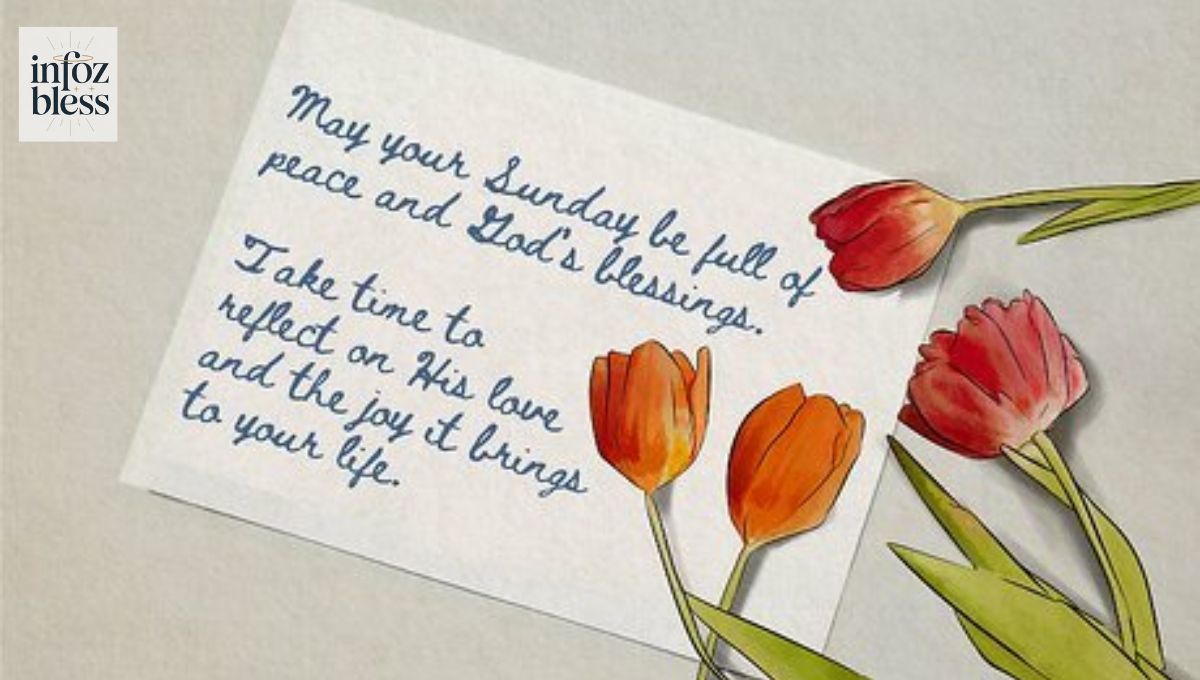 infoz
bless
May your Sunday be full of
peace and God's blessings.
Take time to
reflect on His love
and the joy it brings
to your life.